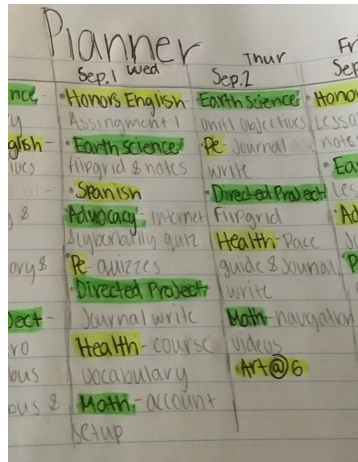 Planner
nce-
glish-
ory &
ject-
bus
bus &
Sep. 1 Wed
•Honors English-
Assingment 1
•Earth science-
flipgrid & notes
•Spanish
Advocacy- internet
& cyberbully quiz
•Pe- quizzes
•Directed Project-
Journal write
Health- course
vocabulary
•Math- account
setup
Thur
Sep. 2
Earth science-
unit 1 objectives
Pe- Journal
write
•Directed Project-
Flipgrid
Health- Pace
guide & Journal
write
Math- navgation
videos
Art@6
Fr
Sep
•Hono
Lesso
note
•Ea
Les
•Ad
P